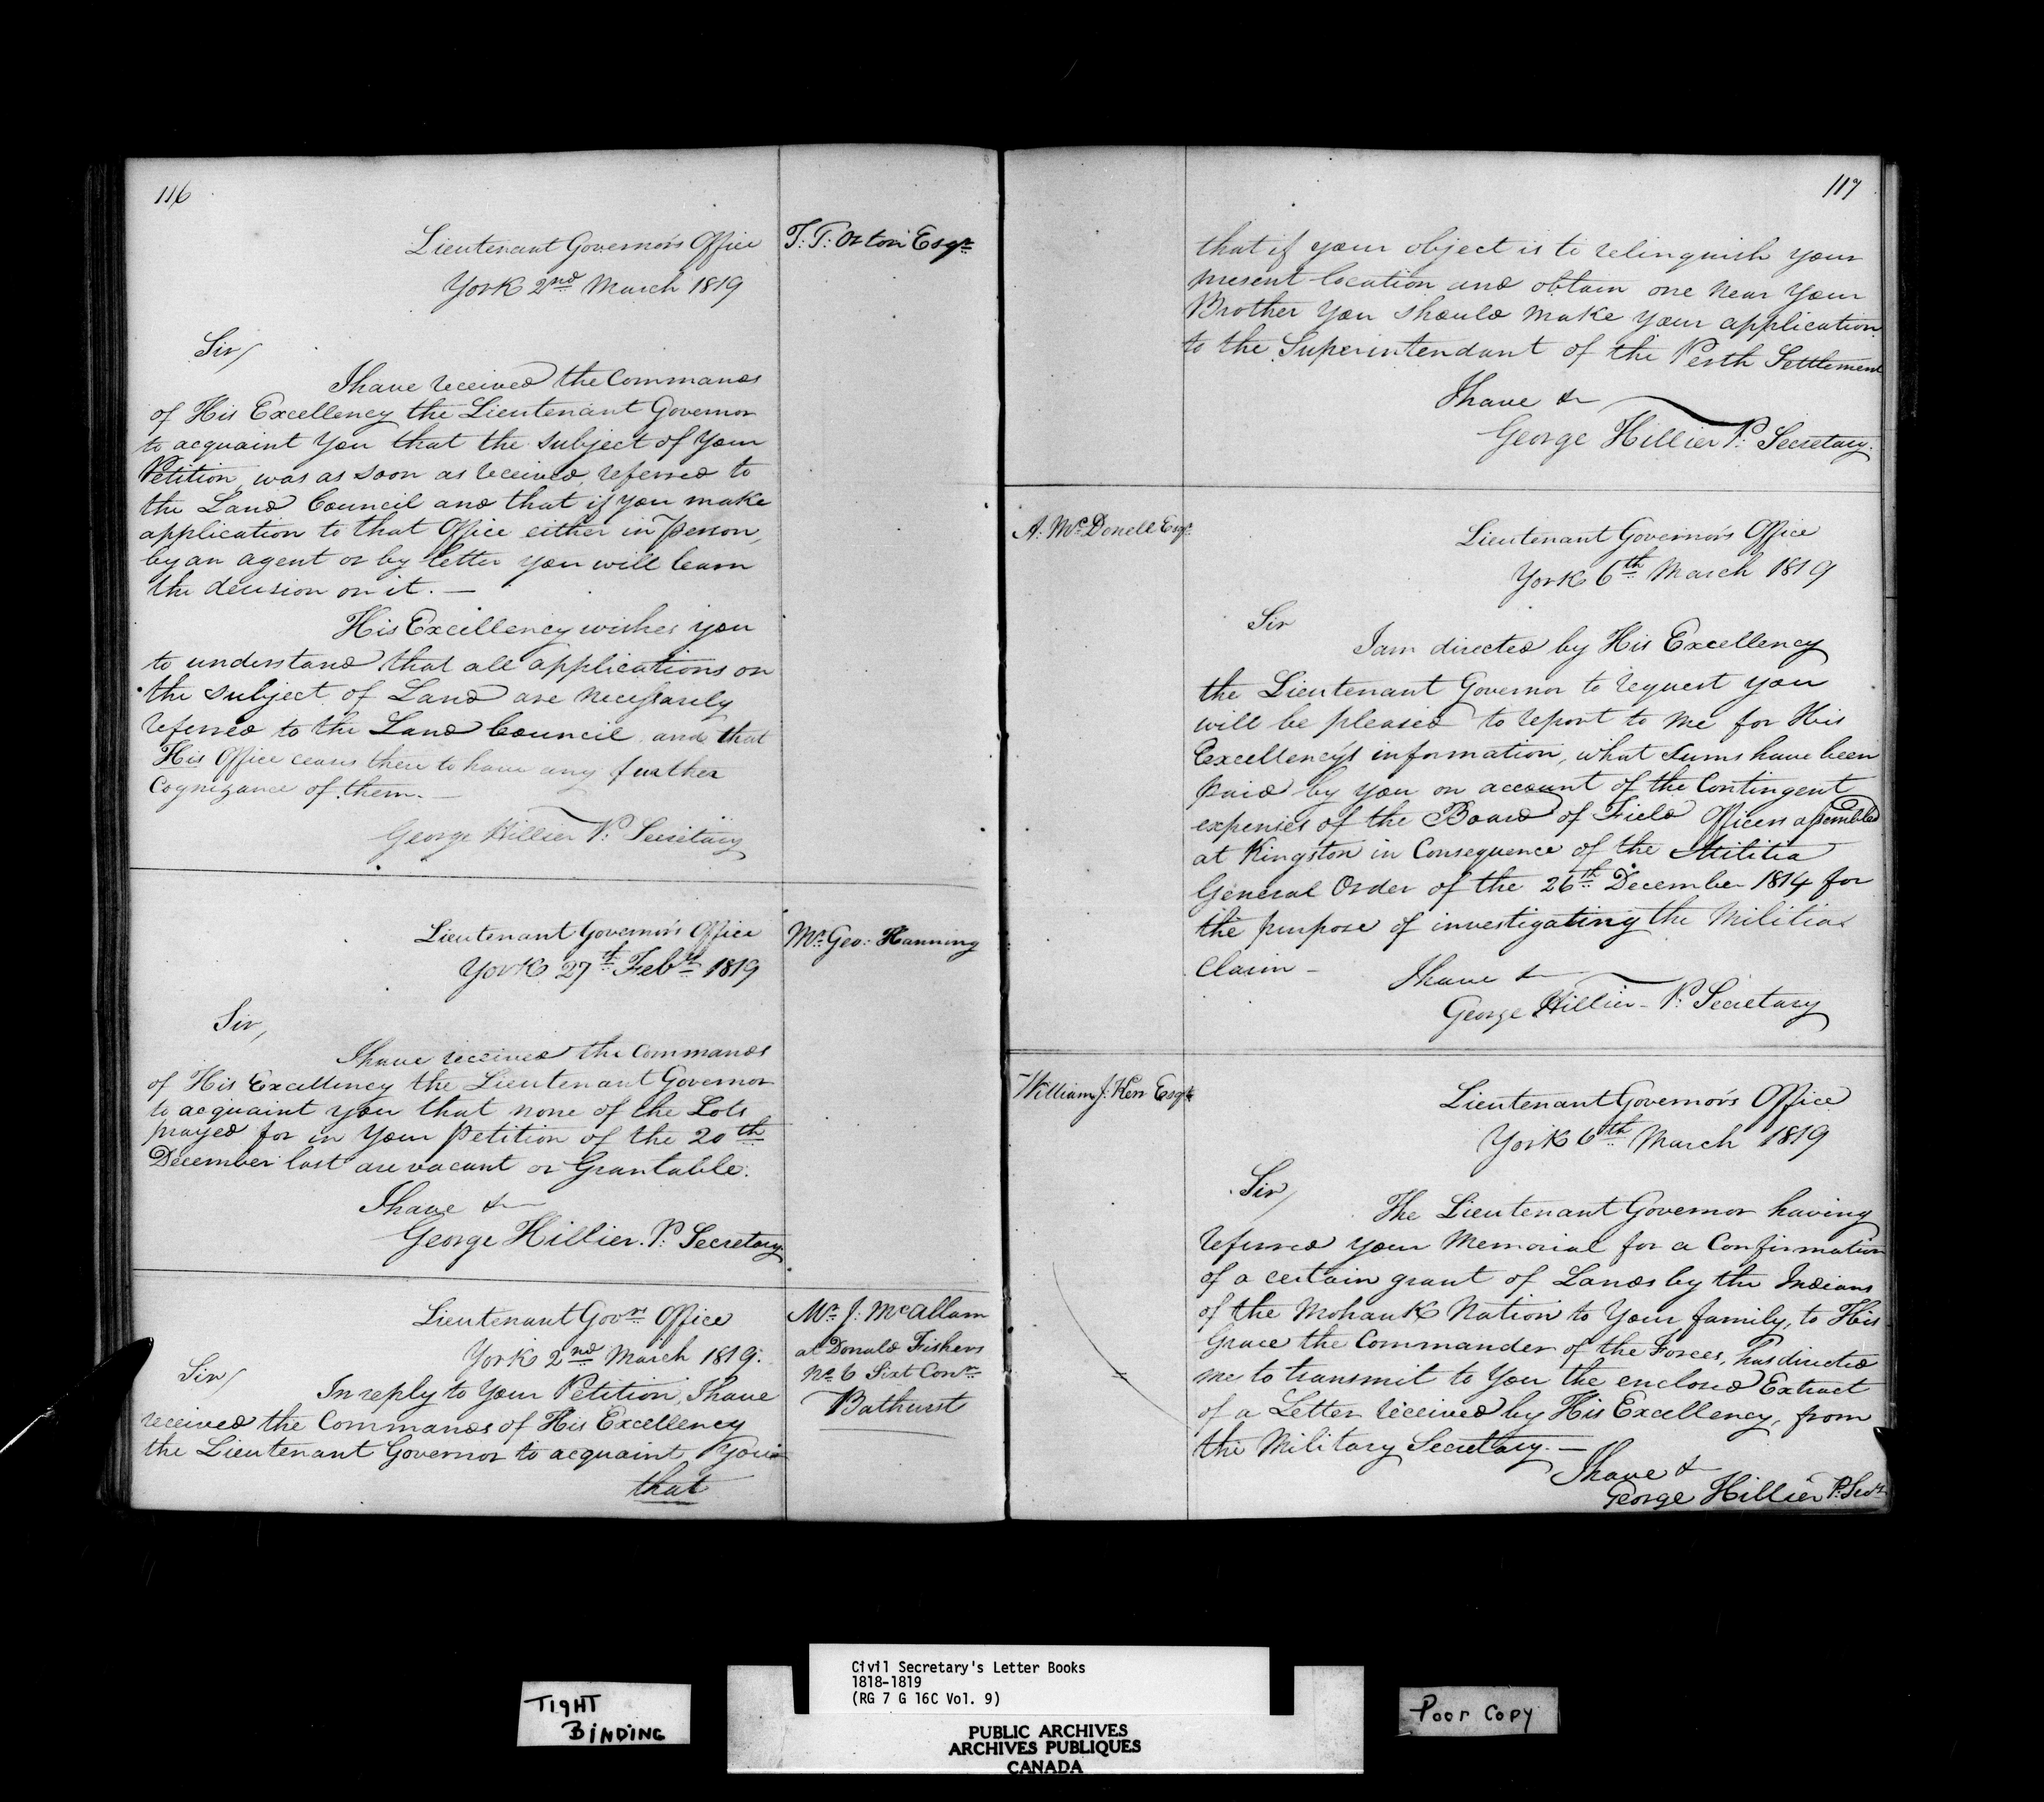 116
Lieutenant Governor's Office
York 2nd March 1819
T. T. Orton Esqr
Sir/
I have received the Commands
of His Excellency the Lieutenant Governor
to acquaint You that the subject of Your
Petition, was as soon as received, referred to
the Land Council and that if you make
application to that Office either in Person,
by an agent or by letter you will learn
the decision on it. —
His Excellency wishes you
to understand that all applications on
the subject of Land are necessarily
referred to the Land Council and that
His Office ceases there to have any further
Cognizance of them. —
George Hillier P: Secretary
Lieutenant Governor's Office
York 27th Feby 1819
Mr Geo: Hanning
Sir,
I have received the Commands
of His Excellency the Lieutenant Governor
to acquaint you that none of the Lots
prayed for in Your Petition of the 20th
December last are vacant or Grantable.
I have &
George Hillier. P: Secretary
Lieutenant Govrs Office
York 2nd March 1819.
Mr J: McAllam
at Donald Fishers
No 6 Sixt Conn
Bathurst
Sir/
In reply to Your Petition, I have
received the Commands of His Excellency
the Lieutenant Governor to acquaint You
that
117
that if your object is to relinquish your
present location and obtain one near Your
Brother You should make your application
to the Superintendant of the Perth Settlement
I have &
George Hillier P: Secretary.
A: McDonell Esqr
Lieutenant Governor's Office
York 6th March 1819
Sir
I am directed by His Excellency
the Lieutenant Governor to request you
will be pleased to report to me for His
Excellency's information, what Sums have been
paid by you on account of the Contingent
expenses of the Board of Field Officers assembled
at Kingston in Consequence of the Militia
General Order of the 26th December 1814 for
the purpose of investigating the Militia
Claim —
I have &
George Hillier — P: Secretary
William J: Kerr Esqr
Lieutenant Governor's Office
York 6th March 1819
Sir/
The Lieutenant Governor having
referred your Memorial for a Confirmation
of a certain grant of Lands by the Indians
of the Mohawk Nation to Your family, to His
Grace the Commander of the Forces, has directed
me to transmit to You the enclosed Extract
of a Letter received by His Excellency, from
the Military Secretary. —
I have &
George Hillier P: Secy
TIGHT
BINDING
Civil Secretary's Letter Books
1818-1819
(RG 7 G 16C Vol. 9)
PUBLIC ARCHIVES
ARCHIVES PUBLIQUES
CANADA
Poor Copy